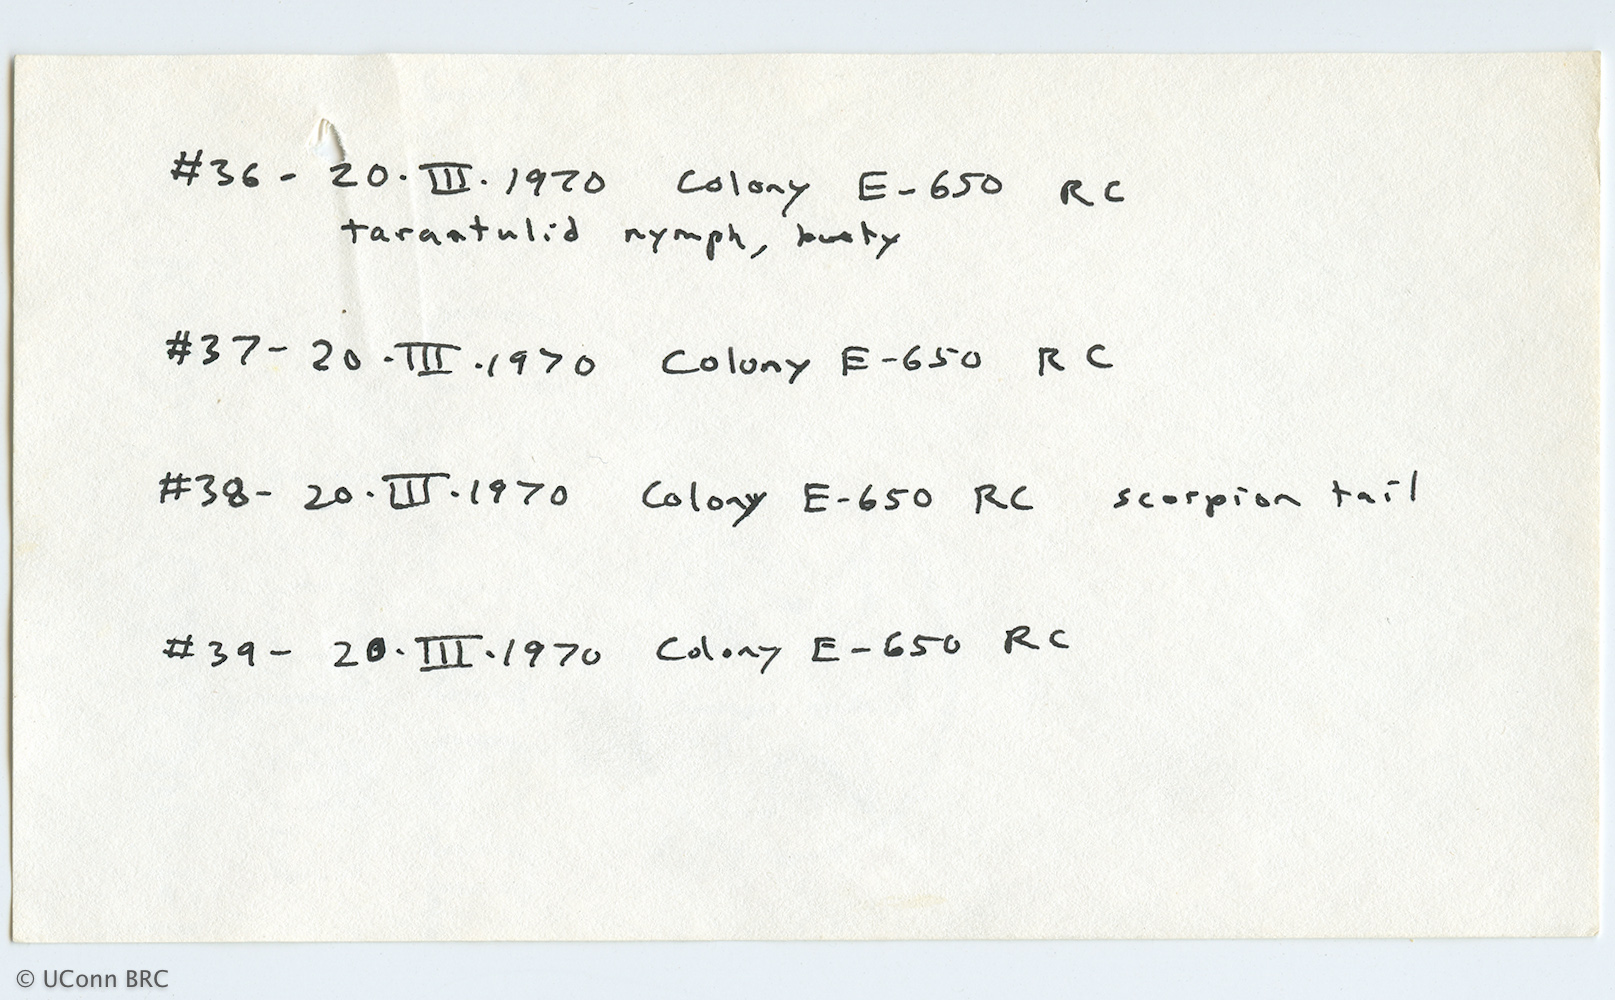 #36 - 20 · III · 1970 Colony E-650 RC
tarantulid nymph,
#37 - 20 · III · 1970 Colony E-650 RC
#38 - 20 · III · 1970 Colony E-650 RC scorpion tail
#39 - 20 · III · 1970 Colony E-650 RC
© UConn BRC